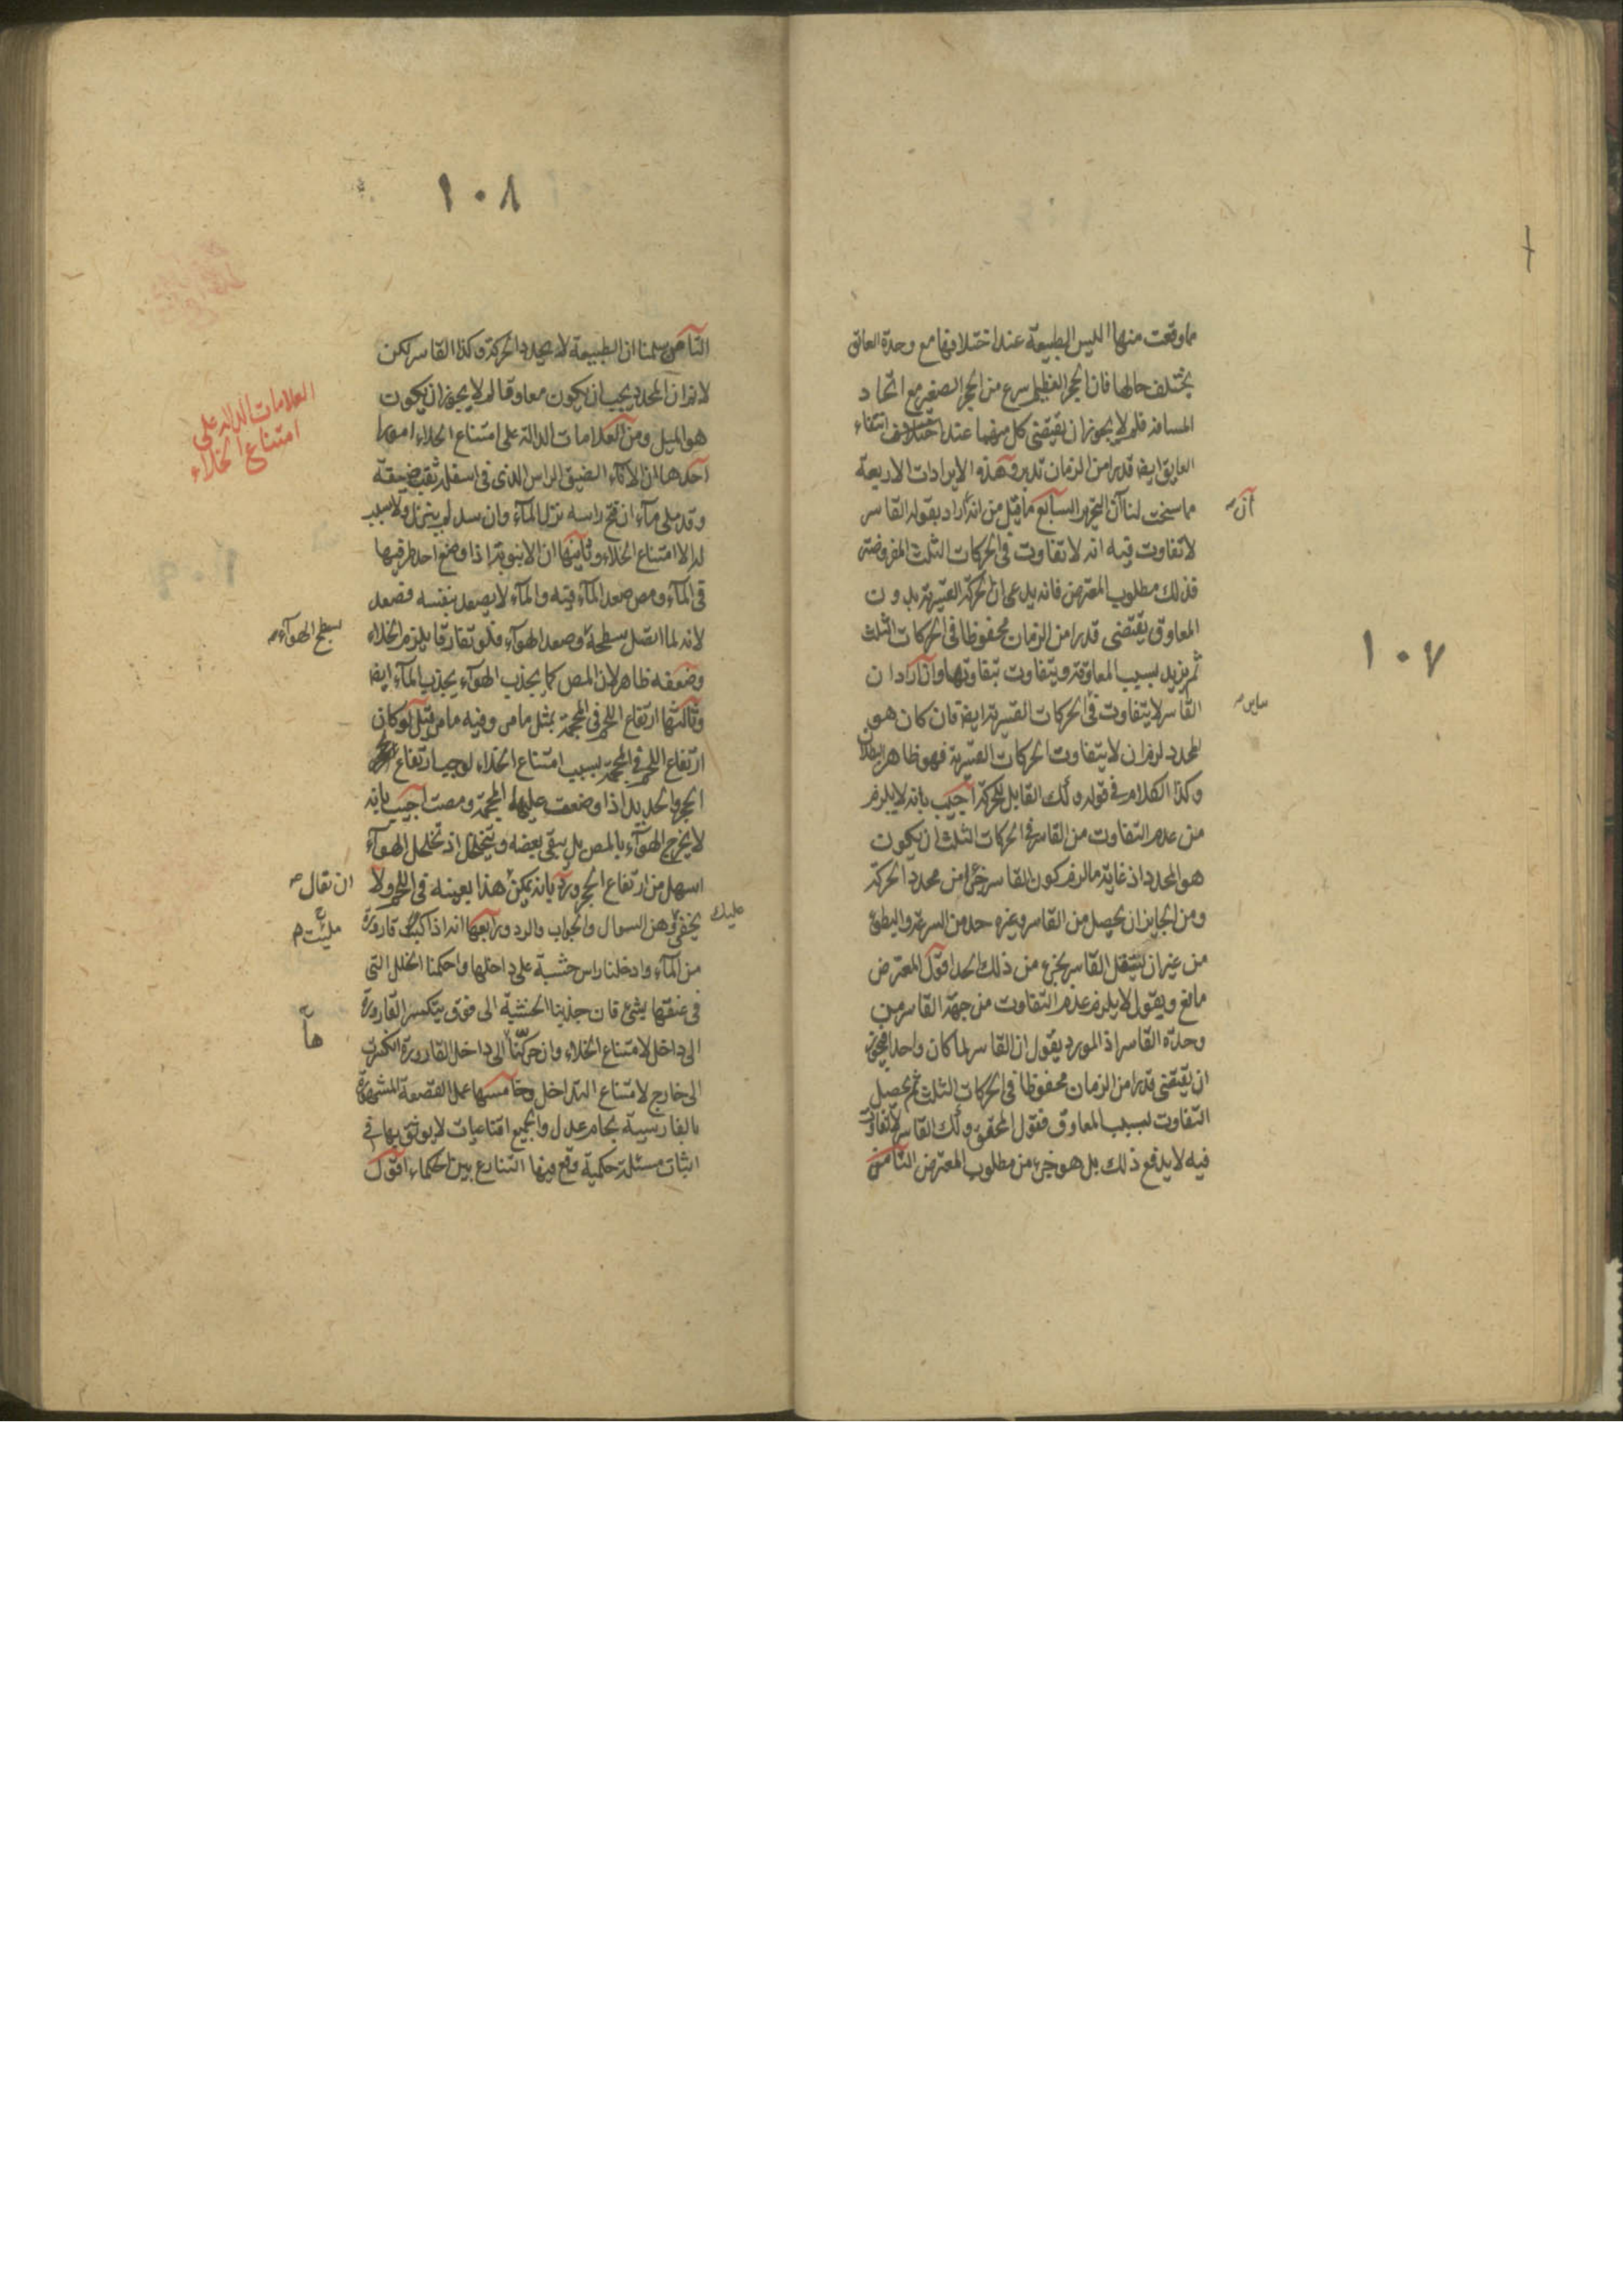 ١٠٧
مما وقعت منها اليس الطبيعة عند اختلافها مع وحدة العائق
يختلف حالها فان الحجر العظيم اسرع من الحجر الصغير مع اتحاد
المسافة فلم لا يجوز ان يقتضى كل منهما عند انتفاء
العايق ايضا قدرا من الزمان تدبر وهذه الايرادات الاربعة
مما سنحت لنا السابع ما قيل من انه اراد بقوله القاسر
أن
لا تفاوت فيه انه لا تفاوت فى الحركات الثلث المفروضة
فذلك مطلوب المعترض فانه يدعى ان الحركة القسرية بدون
المعاوق يقتضى قدرا من الزمان محفوظا فى الحركات الثلث
ثم يزيد بسبب المعاوقة ويتفاوت بتفاوتها وان اراد ان
القاسر لا يتفاوت فى الحركات القسرية ايضا فان كان هو
ساير
المحدد لزم ان لا يتفاوت الحركات القسرية فهو ظاهر البطلان
وكذا الكلام فى قوله وكذلك القابل للحركة اجيب بانه لا يلزم
من عدم التفاوت من القاسر فى الحركات الثلث ان يكون
هو المحدد اذ غاية ما لزم كون القاسر جزءا من محدد الحركة
ومن الجايز ان يحصل من القاسر وغيره حد من السرعة والبطئ
من غير ان يستقل القاسر بجزء من ذلك الحد اقول المعترض
مانع ويقول لا يلزم عدم التفاوت من جهة القاسر من
وحدة القاسر اذ المورد يقول ان القاسر لما كان واحدا فيجوز
ان يقتضى قدرا من الزمان محفوظا فى الحركات الثلث ثم يحصل
التفاوت بسبب المعاوق فقول المحقق وكذلك القاسر لا تفاوت
فيه لا يدفع ذلك بل هو جزء من مطلوب المعترض الثامن
١٠٨
الثامن سلمنا ان الطبيعة لا يحدد الحركة وكذا القاسر لكن
لانم ان المحدد يجب ان يكون معاوقا لم لا يجوز ان يكون
هو الميل ومن العلامات الدالة على امتناع الخلاء امورا
العلامات الدالة على
امتناع الخلاء
احدها ان الاناء الضيق الراس الذى فى اسفله ثقب ضيقة
وقد ملى ماء ان فتح راسه نزل الماء وان سد لم ينزل ولا سبب
له الا امتناع الخلاء وثانيها ان الانبوبة اذا وضع احد طرفيها
فى الماء ومص صعد الماء فيه والماء لا يصعد بنفسه فصعد
لانه لما اتصل سطحه وصعد الهواء فلو تفارقا يلزم الخلاء
سطح الهواء
وضعفه ظاهر لان المص كما يجذب الهواء يجذب الماء ايضا
وثالثها ارتفاع اللحم فى المحجمة بمثل ما مر وفيه ما مر قيل لو كان
ارتفاع اللحم فى المحجمة بسبب امتناع الخلاء لوجب ارتفاع
الحجر والحديد اذا وضعت عليها المحجمة ومصت اجيب بانه
لا يخرج الهواء بالمص بل يبقى بعضه ويتخلخل اذ تخلخل الهواء
اسهل من ارتفاع الحجر ورد بانه يمكن هذا بعينه فى اللحم ولا
ان تقال
يخفى وهن السوال والجواب والرد ورابعها انه اذا قارورة
عليك
ملئت
من الماء وادخلنا راس خشبة على داخلها واحكمنا الخلل التى
فى عنقها بشئ فان جذبنا الخشبة الى فوق يتكسر القارورة
الى داخل لامتناع الخلاء وان حركنا الى داخل القارورة انكسرت
ها
الى خارج لامتناع التداخل وخامسها عمل القصعة المشهورة
بالفارسية بجام عدل والجميع اقناعيات لا يوثق بها فى
اثبات مسئلة حكمية وقع فيها التنازع بين الحكماء اقول